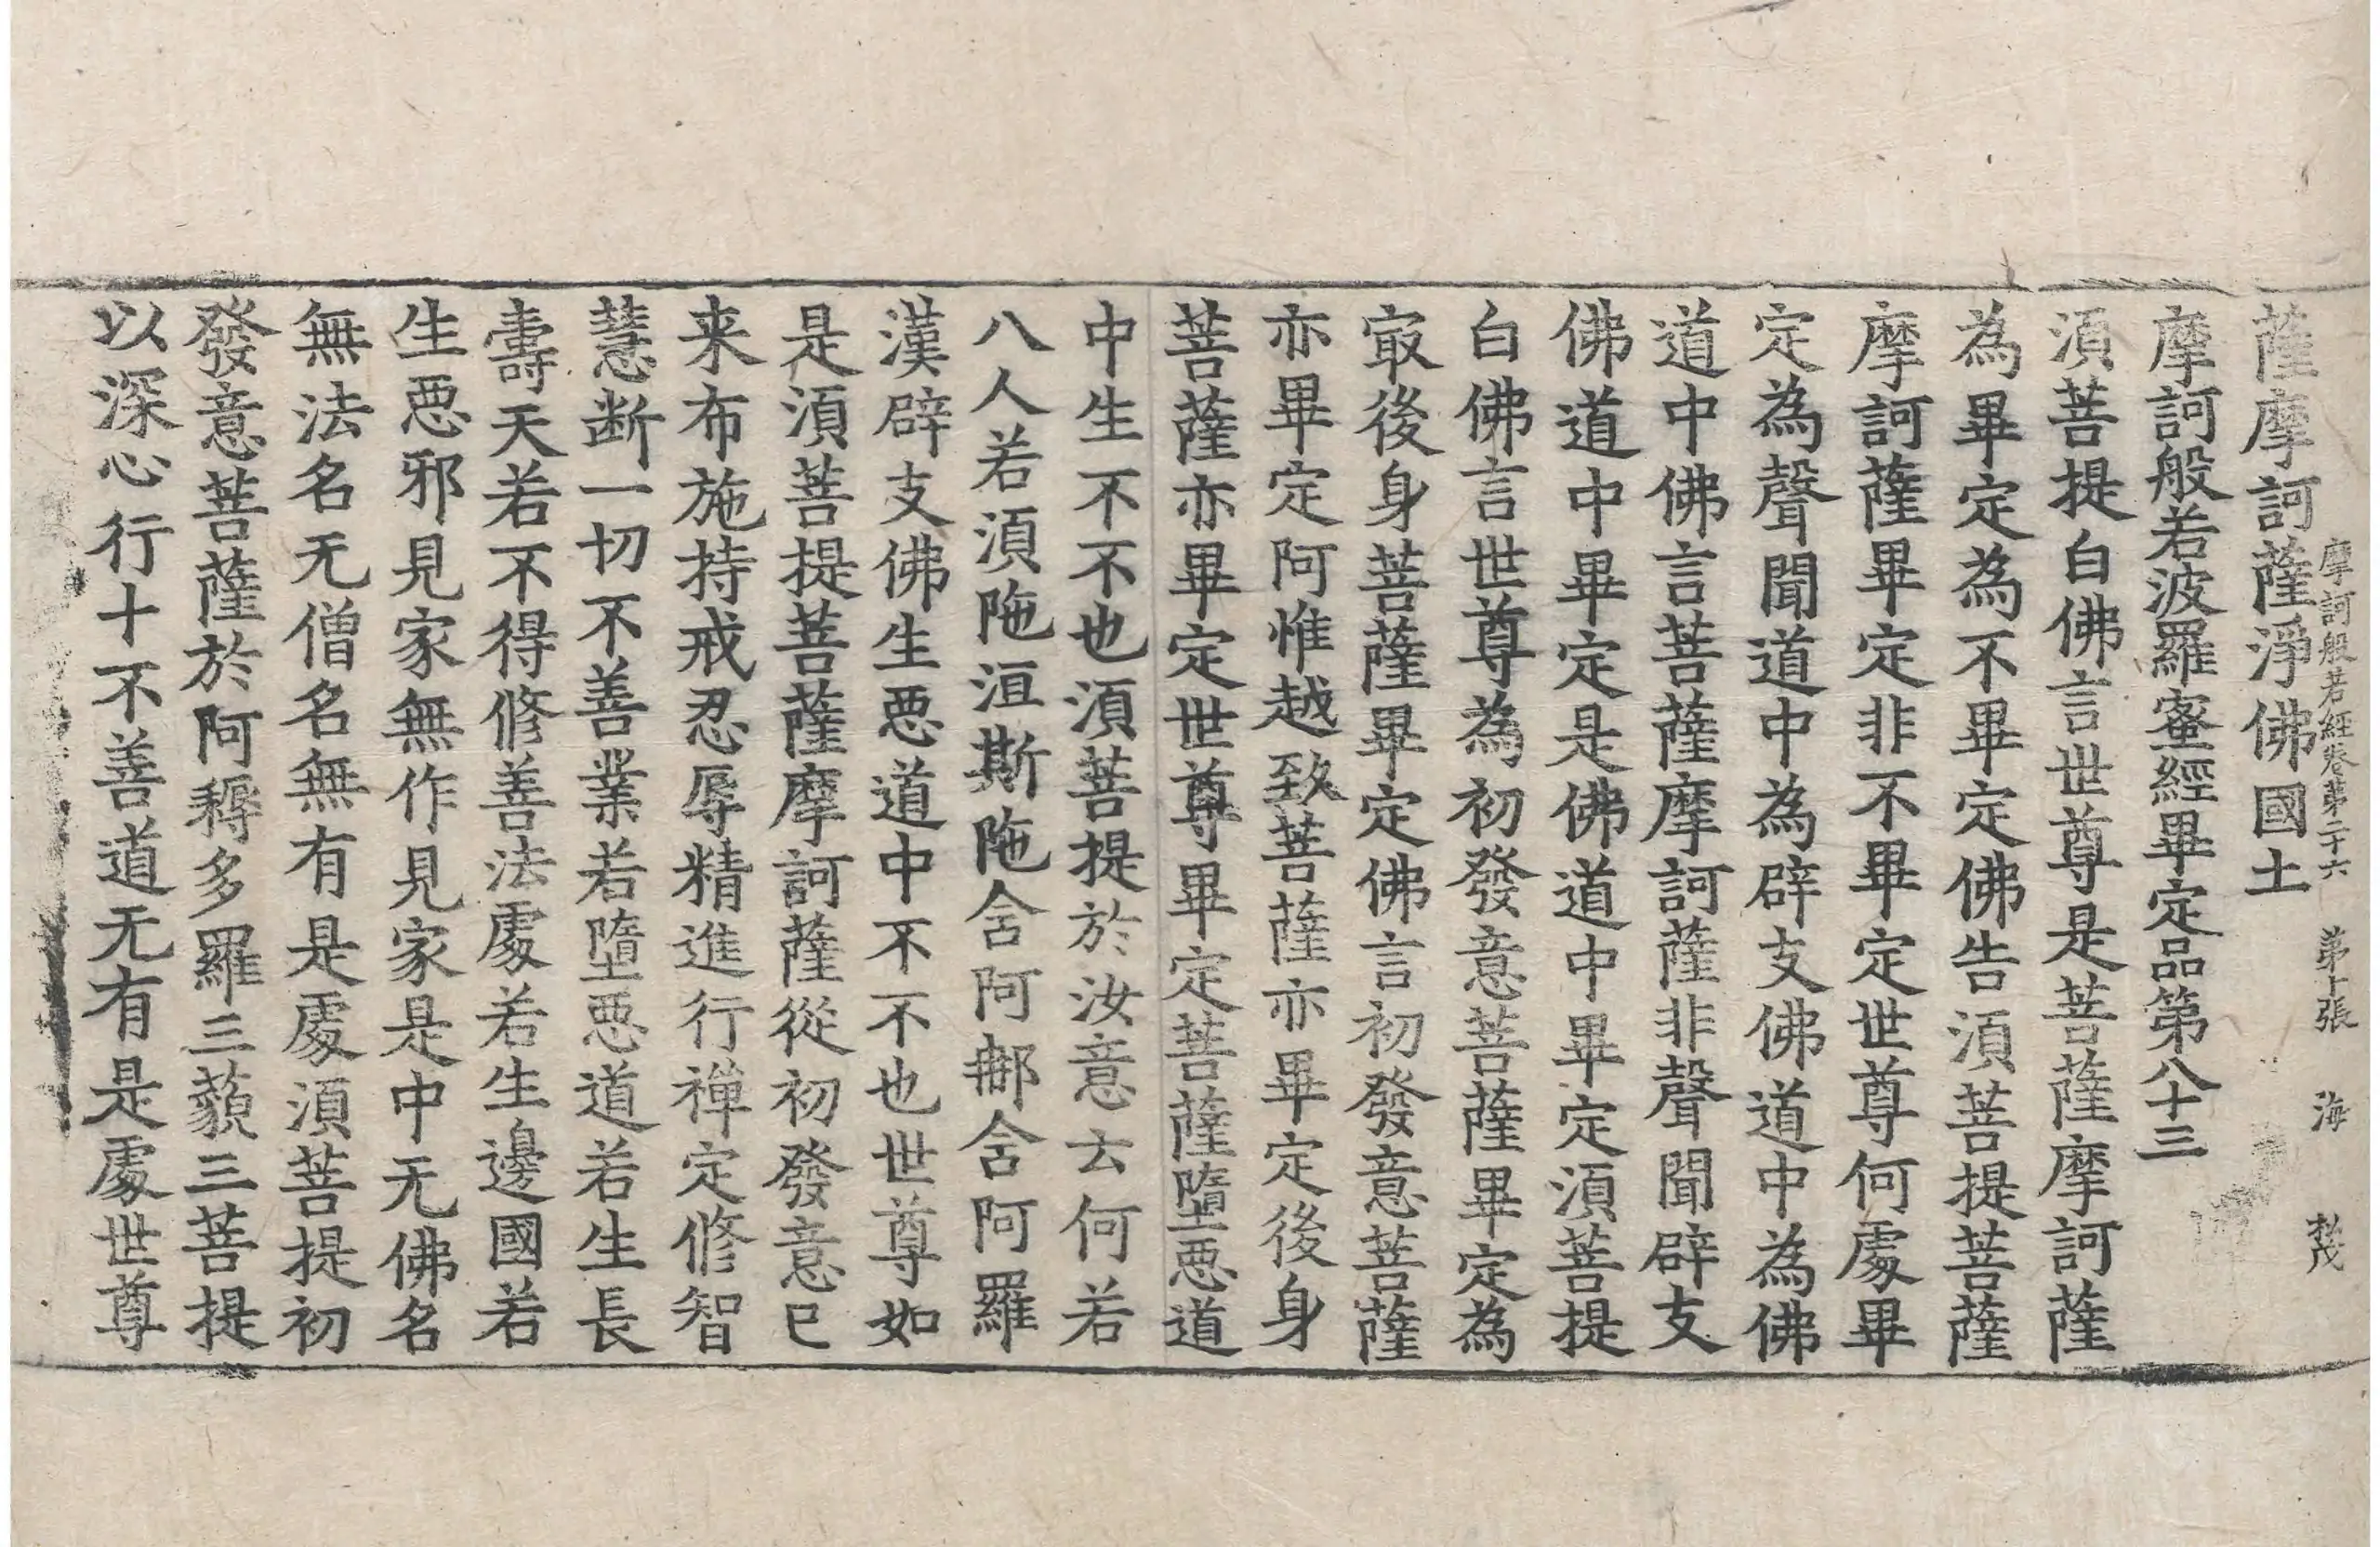 摩訶般若經卷第二十六 第十張 海
薩摩訶薩淨佛國土
摩訶般若波羅蜜經畢定品第八十三
須菩提白佛言世尊是菩薩摩訶薩
為畢定為不畢定佛告須菩提菩薩
摩訶薩畢定非不畢定世尊何處畢
定為聲聞道中為辟支佛道中為佛
道中佛言菩薩摩訶薩非聲聞辟支
佛道中畢定是佛道中畢定須菩提
白佛言世尊為初發意菩薩畢定為
㝡後身菩薩畢定佛言初發意菩薩
亦畢定阿惟越致菩薩亦畢定後身
菩薩亦畢定世尊畢定菩薩墮惡道
中生不不也須菩提於汝意云何若
八人若須陁洹斯陁含阿那含阿羅
漢辟支佛生惡道中不不也世尊如
是須菩提菩薩摩訶薩從初發意已
来布施持戒忍辱精進行禪定修智
慧断一切不善業若墮惡道若生長
壽天若不得修善法處若生邊國若
生惡邪見家無作見家是中无佛名
無法名无僧名無有是處須菩提初
發意菩薩於阿耨多羅三藐三菩提
以深心行十不善道无有是處世尊